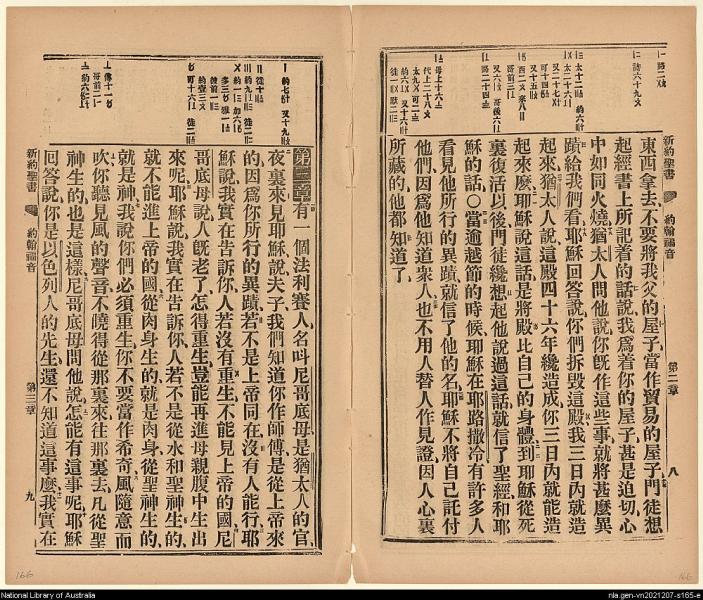 新約聖書 約翰福音 第二章 八
東西拿去、不要將我父的屋子、當作貿易的屋子、門徒想
起經書上所記着的話說、我爲着你的屋子、甚是迫切、心
中如同火燒、猶太人問他說、你既作這些事、就將甚麼異
蹟給我們看、耶穌回答說、你們拆毀這殿、我三日內就造
起來、猶太人說、這殿四十六年纔造成、你三日內就能造
起來麼、耶穌說這話、是將殿比自己的身體、到耶穌從死
裏復活以後、門徒纔想起他說過這話、就信了聖經、和耶
穌的話、〇當逾越節的時候、耶穌在耶路撒冷、有許多人
看見他所行的異蹟、就信了他的名、耶穌不將自己託付
他們、因爲他知道衆人、也不用人替人作見證、因人心裏
所藏的、他都知道了、
第三章 有一個法利賽人、名叫尼哥底母、是猶太人的官、
夜裏來見耶穌說、夫子、我們知道你作師傅、是從上帝來
的、因爲你所行的異蹟、若不是上帝同在、沒有人能行、耶
穌說、我實在告訴你、人若沒有重生、不能見上帝的國、尼
哥底母說、人既老了、怎得重生、豈能再進母親腹中生出
來呢、耶穌說、我實在告訴你、人若不是從水和聖神生的、
就不能進上帝的國、從肉身生的、就是肉身、從聖神生的、
就是神、我說你們必須重生、你不要當作希奇、風隨意而
吹、你聽見風的聲音、不曉得從那裏來、往那裏去、凡從聖
神生的、也是這樣、尼哥底母問他說、怎能有這事呢、耶穌
回答說、你是以色列人的先生、還不知道這事麼、我實在
新約聖書 約翰福音 第三章 九
166
166
National Library of Australia
nla.gen-vn2021207-s165-e